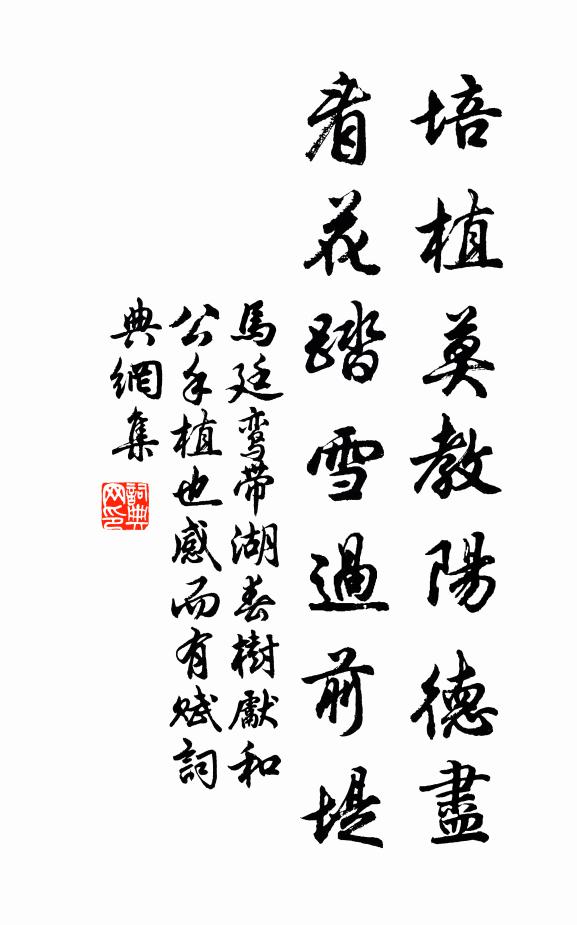 培植莫教陽德盡
看花踏雪過前堤
馬廷鸾帶湖春樹獻和
公手植也感而有賦詞
典網集
詞典
网印